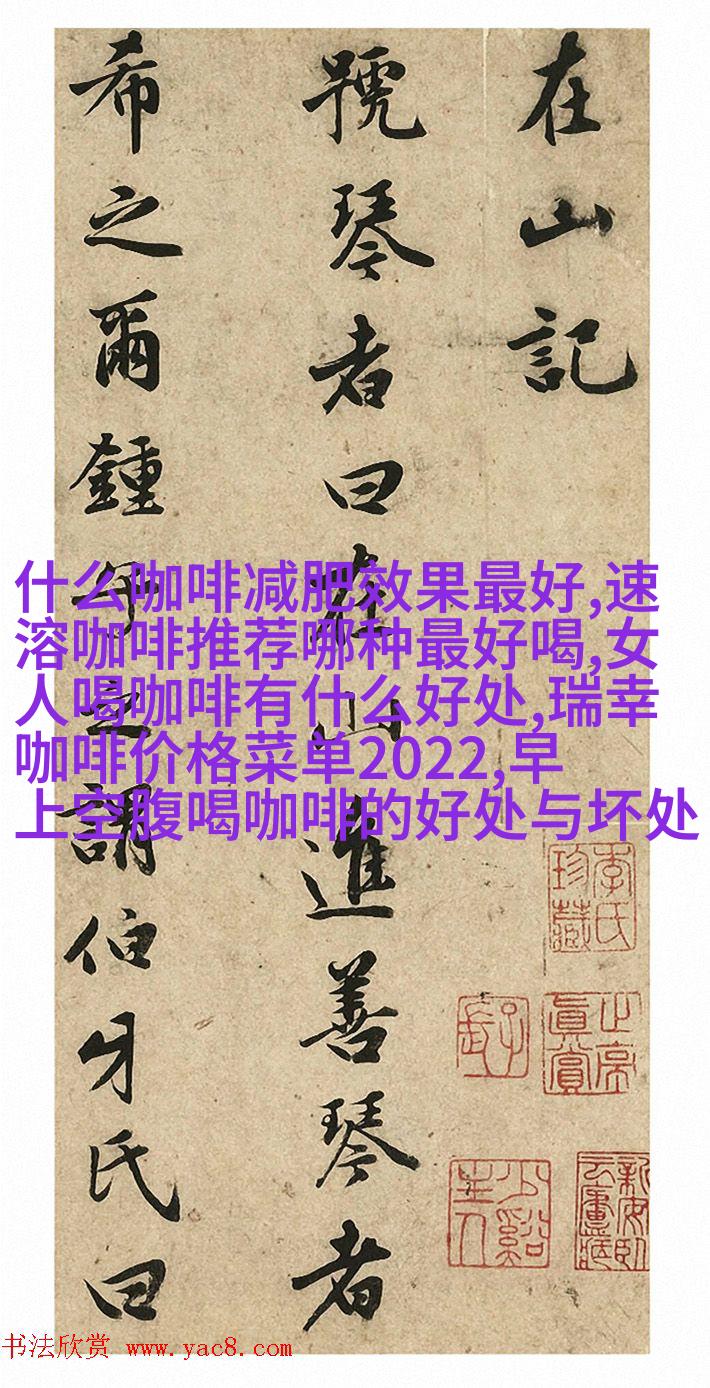 在山記
號琴者曰山進善琴者
希之爾鍾子謂伯牙氏曰
什么咖啡减肥效果最好,速
溶咖啡推荐哪种最好喝,女
人喝咖啡有什么好处,瑞幸
咖啡价格菜单2022,早
上空腹喝咖啡的好处与坏处
李氏
珍藏
止亭
真賞
少谿
主人
书法欣赏 www.yac8.com